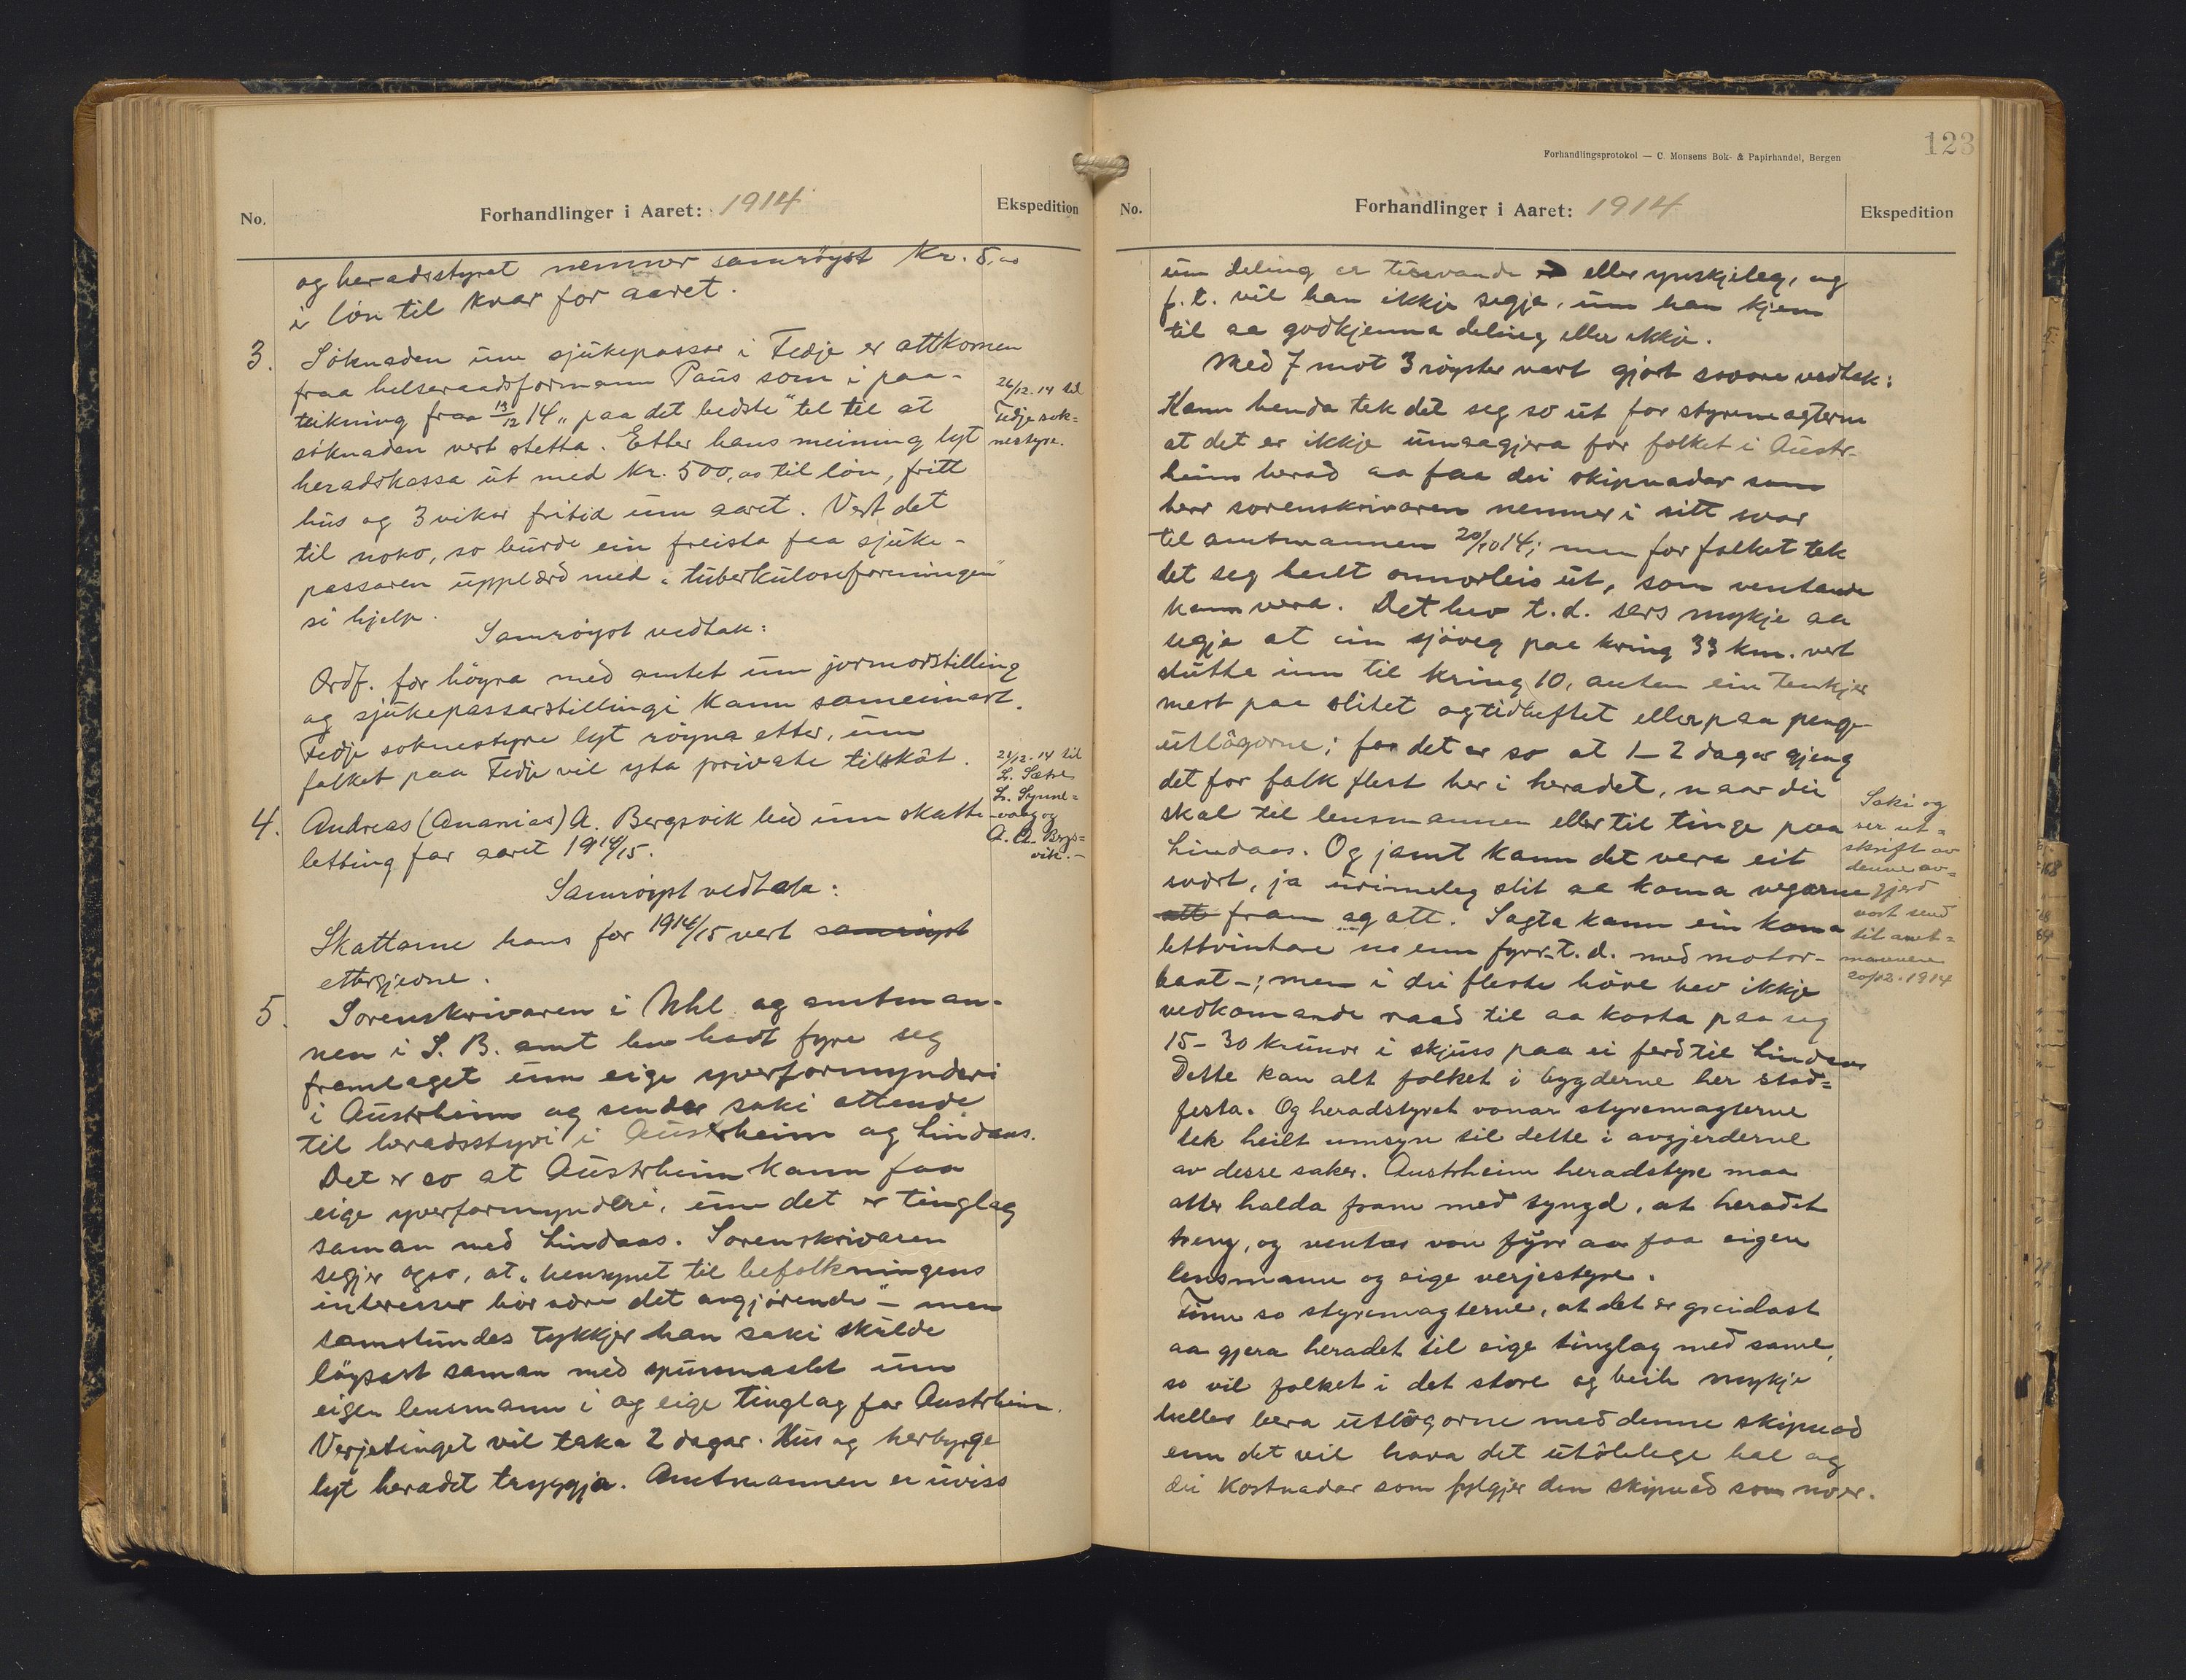 No.
Forhandlinger i Aaret: 1914
Ekspedition
og heradsstyret nemner samröyst Kr. 5,00
i lön til kvar for aaret.
3. Söknaden um sjukepassar i Fedje er attkomen
fraa helseraadsformann Paus som i paa-
teikning fraa 13/12 14 „paa det bedste" tel til at
söknaden vert stetta. Etter hans meining lyt
heradskassa ut med Kr. 500,00 til lön, fritt
hus og 3 vikor fritid um aaret. Vert det
til noko, so burde ein freista faa sjuke-
passaren upplærd med „tuberkuloseforeningen"
si hjelp.
26/12.14 til
Fedje sok=
nestyre.
Samröyst vedtak:
Ordf. fær höyra med amtet um jormorstilling
og sjukepassarstillingi kann sameinast.
Fedje soknestyre lyt röyna etter, um
folket paa Fedje vil yta private tilskot.
4. Andreas (Ananias) A. Bergsvik bed um skatte
letting for aaret 1914/15.
21/12.14 til
L. Sætre
L. Synne=
vaag og
A. A. Bergs=
vik.-
Samröyst vedtak:
Skattarne hans for 1914/15 vert samröyst
ettergjevne.
5. Sorenskrivaren i Nhl. og amtman-
nen i S. B. amt hev havt fyre seg
framlaget um eige yverformynderi
i Austrheim og sender saki attende
til heradsstyri i Austrheim og Lindaas.
Det er so at Austrheim kann faa
eige yverformynderi, um det er tinglag
saman med Lindaas. Sorenskrivaren
segjer ogso, at „hensynet til befolkningens
interesser bör være det avgjörende" – men
samstundes tykkjer han saki skulde
löysast saman med spursmaalet um
eigen lensmann i og eige tinglag for Austrheim.
Verjetinget vil taka 2 dagar. Hus og herbyrge
lyt heradet tryggja. Amtmannen er uviss
123
Forhandlingsprotokol — C. Monsens Bok- & Papirhandel, Bergen
No.
Forhandlinger i Aaret: 1914
Ekspedition
um deling er eller ynskjeleg, og
f. t. vil han ikkje segja, um han kjem
til aa godkjenna deling eller ikkje.
Med 7 mot 3 röyster vart gjort sovore vedtak:
Kann henda tek det seg so ut for styremagterne
at det er ikkje umaagjera for folket i Austr-
heim herad aa faa dei skipnadar som
herr sorenskrivaren nemner i sitt svar
til amtmannen 20/10 14; men for folket tek
det seg heilt annorleis ut, som ventande
kann vera. Det hev t.d. sers mykje aa
segja at ein sjöveg paa kring 33 km. vert
stutta inn til kring 10, anten ein tenkjer
mest paa slitet og tidheftet eller paa penge
utlögorne; for det er so at 1–2 dagar gjeng
det for folk flest her i heradet, naar dei
skal til lensmannen eller til tings paa
Lindaas. Og jamt kann det vera eit
svært, ja urimeleg slit aa koma vegarne
att fram og att. Sagta kann ein koma
lettvintare no enn fyrr – t. d. med motor-
baat –; men i dei fleste höve hev ikkje
vedkomande raad til aa kosta paa seg
15–30 krunor i skjuss paa ei ferd til Lindaas
Dette kan alt folket i bygderne her stad=
festa. Og heradstyret vonar styremagterne
tek heilt umsyn til dette i avgjerderne
av desse saker. Austrheim heradstyre maa
atter halda fram med tyngd, at heradet
treng, og ventar von fyrr aa faa eigen
lensmann og eige verjestyre.
Finn so styremagterne, at det er greidast
aa gjera heradet til eige tinglag med same,
so vil folket i det store og heile mykje
heller bera utlögorne med denne skipnad
enn det vil hava det utölelege hal og
dei kostnadar som fylgjer den skipnad som no er.
Saki og
ser ut=
skrift av
denne av=
gjerd
vart send
til amt=
mannen
20/12.1914